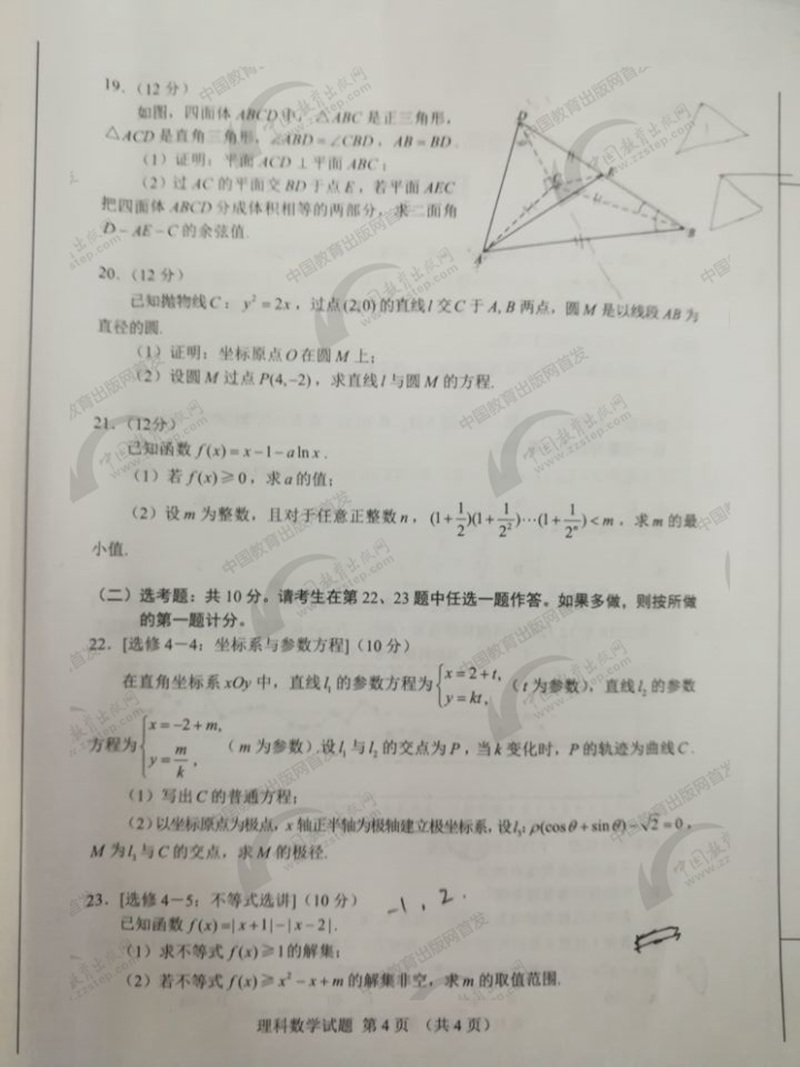 19.（12 分）
如图，四面体 ABCD 中，△ABC 是正三角形，
△ACD 是直角三角形，∠ABD = ∠CBD，AB = BD.
（1）证明：平面 ACD ⊥ 平面 ABC；
（2）过 AC 的平面交 BD 于点 E，若平面 AEC
把四面体 ABCD 分成体积相等的两部分，求二面角
D－AE－C 的余弦值.
D
C
E
B
A
20.（12 分）
已知抛物线 C：y² = 2x，过点 (2,0) 的直线 l 交 C 于 A, B 两点，圆 M 是以线段 AB 为
直径的圆.
（1）证明：坐标原点 O 在圆 M 上；
（2）设圆 M 过点 P(4,−2)，求直线 l 与圆 M 的方程.
21.（12分）
已知函数 f(x) = x − 1 − a ln x.
（1）若 f(x) ⩾ 0，求 a 的值；
（2）设 m 为整数，且对于任意正整数 n，(1+1/2)(1+1/2²)⋯(1+1/2ⁿ) < m，求 m 的最
小值.
（二）选考题：共 10 分。请考生在第 22、23 题中任选一题作答。如果多做，则按所做
的第一题计分。
22．[选修 4－4：坐标系与参数方程]（10 分）
在直角坐标系 xOy 中，直线 l₁ 的参数方程为 {x = 2 + t, y = kt,（t 为参数），直线 l₂ 的参数
方程为 {x = −2 + m, y = m/k,（m 为参数）.设 l₁ 与 l₂ 的交点为 P，当 k 变化时，P 的轨迹为曲线 C.
（1）写出 C 的普通方程；
（2）以坐标原点为极点，x 轴正半轴为极轴建立极坐标系，设 l₃：ρ(cosθ + sinθ) − √2 = 0，
M 为 l₃ 与 C 的交点，求 M 的极径.
23．[选修 4－5：不等式选讲]（10 分）
-1，2.
已知函数 f(x) = |x + 1| − |x − 2|.
（1）求不等式 f(x) ⩾ 1 的解集；
（2）若不等式 f(x) ⩾ x² − x + m 的解集非空，求 m 的取值范围.
理科数学试题 第 4 页 （共 4 页）
中国教育出版网首发
中国教育出版网
www.zzstep.com